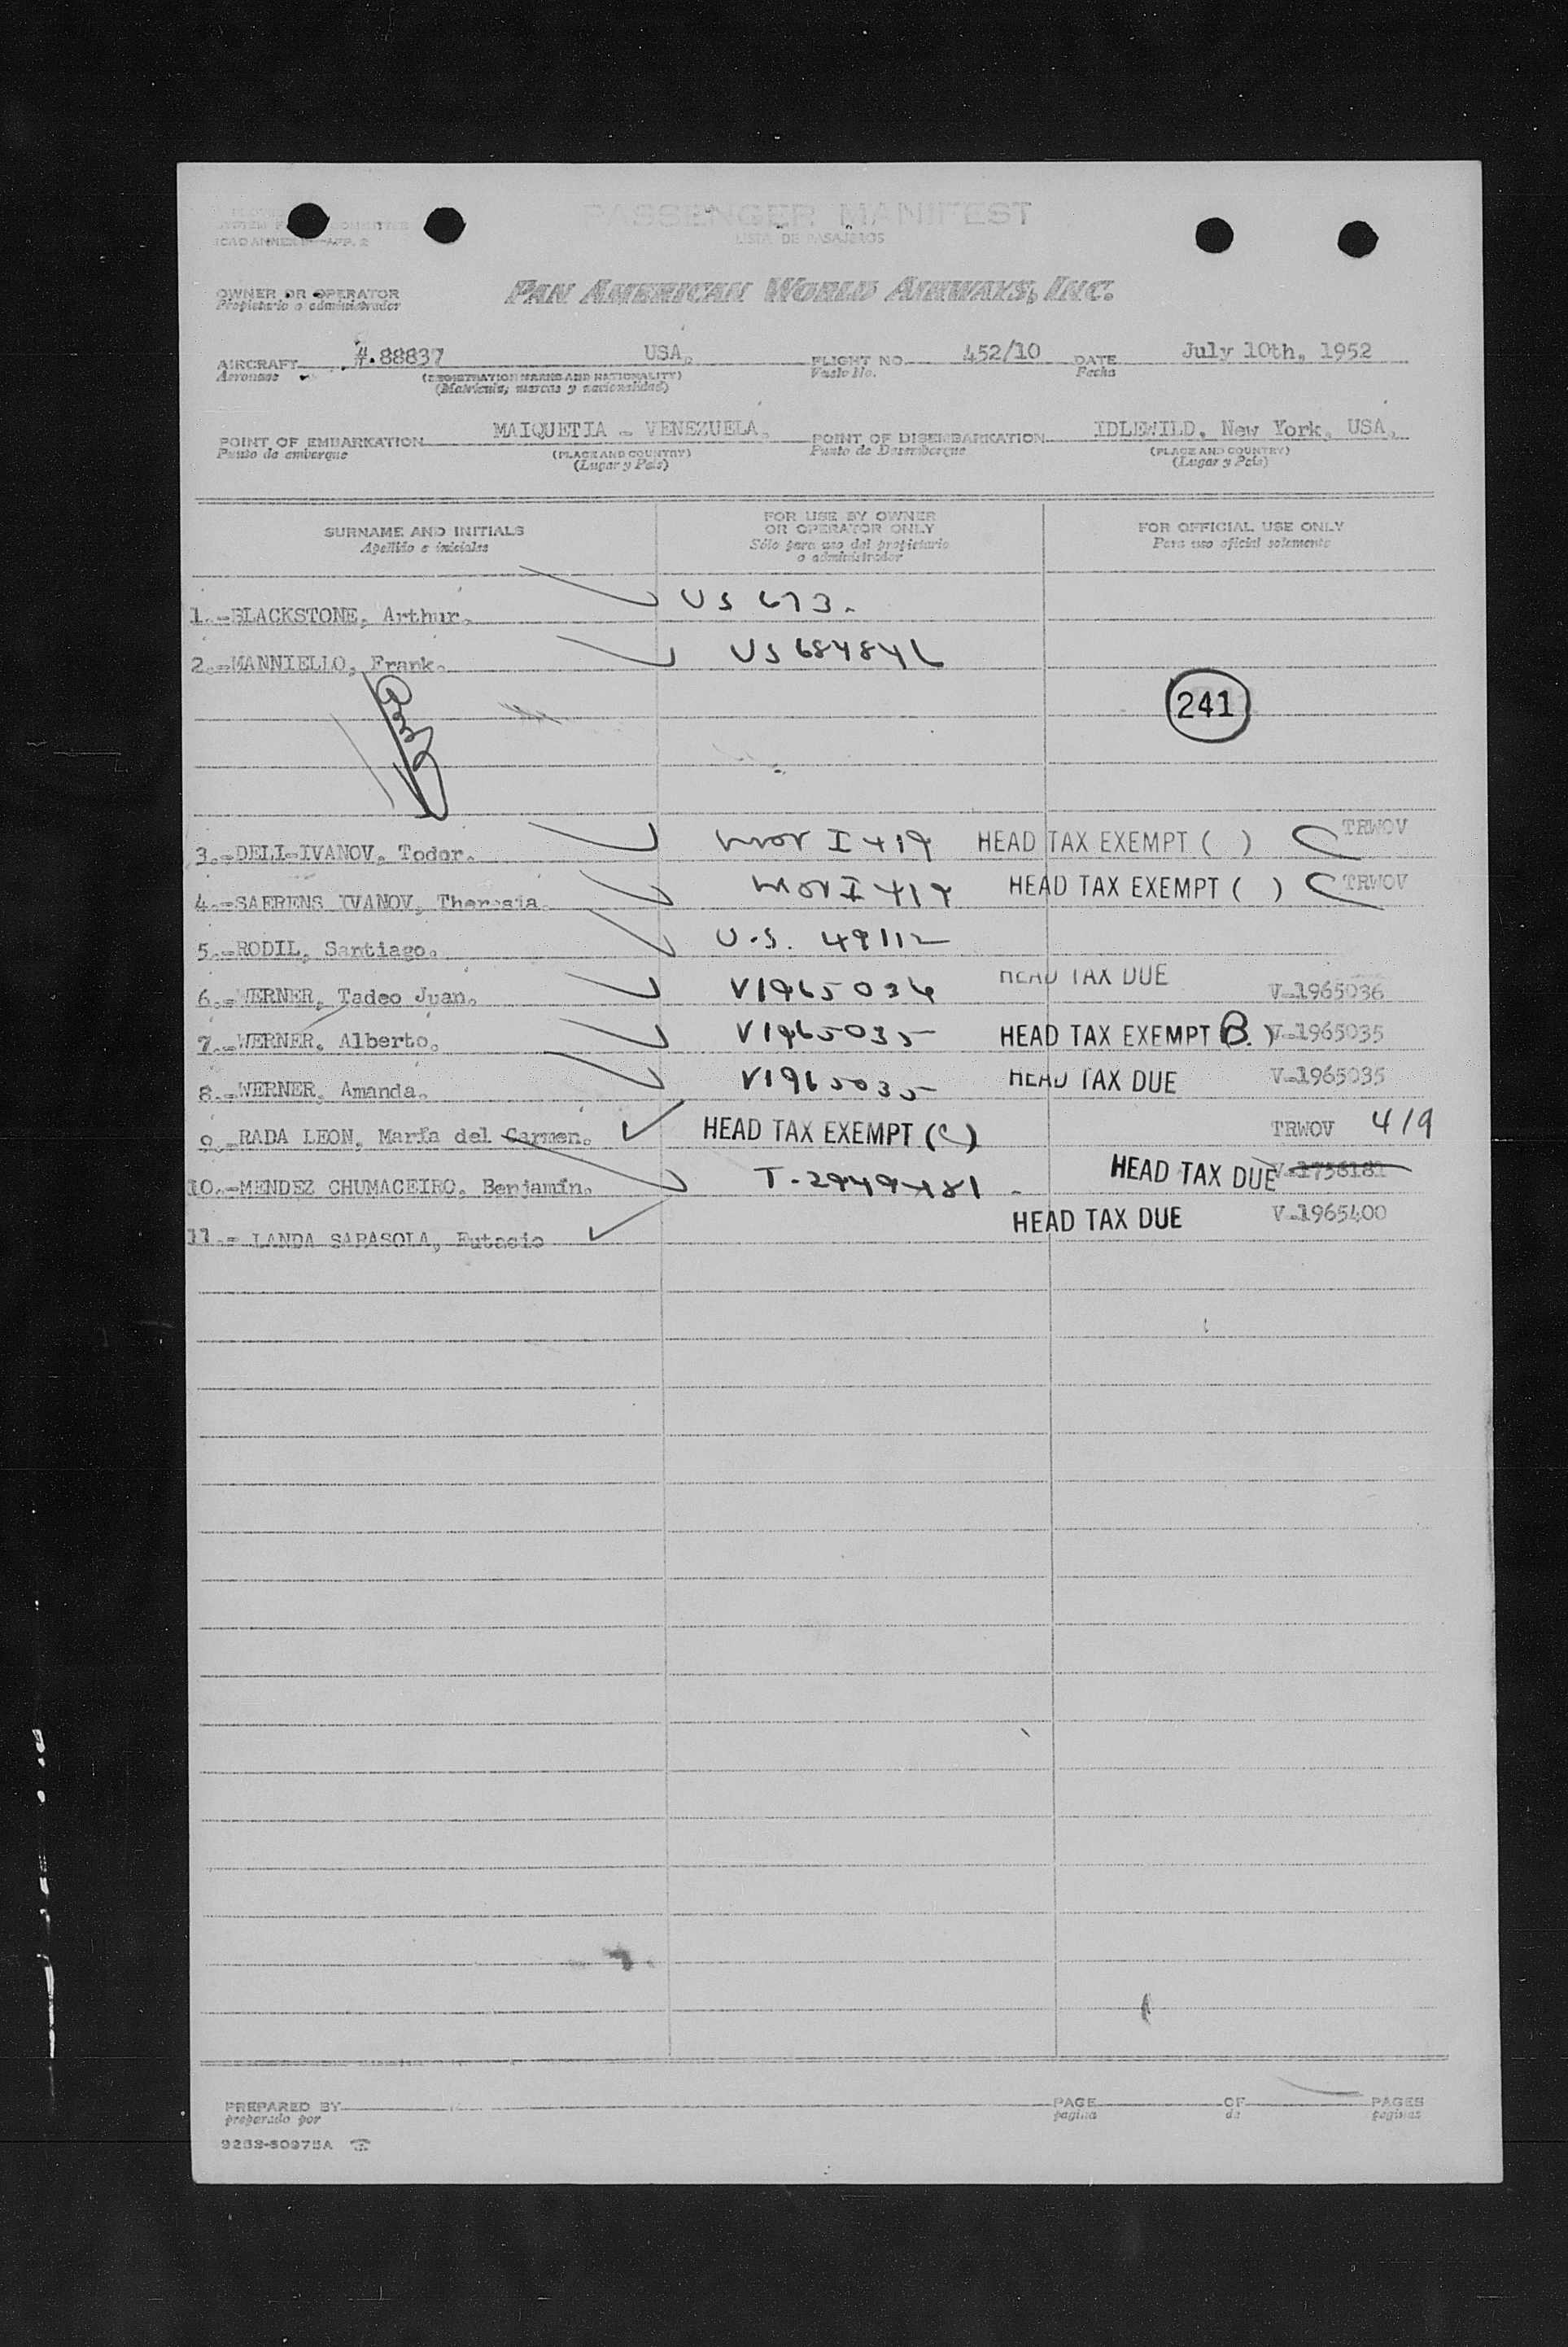 PASSENGER MANIFEST
LISTA DE PASAJEROS
ICAO ANNEX 9—APP. 2
OWNER OR OPERATOR
Propietario o administrador
PAN AMERICAN WORLD AIRWAYS, INC.
AIRCRAFT #.88837 USA. FLIGHT NO. 452/10 DATE July 10th, 1952
Aeronave (REGISTRATION MARKS AND NATIONALITY) Vuelo No. Fecha
(Matrícula, marcas y nacionalidad)
POINT OF EMBARKATION MAIQUETIA - VENEZUELA. POINT OF DISEMBARKATION IDLEWILD, New York, USA.
Punto de embarque (PLACE AND COUNTRY) Punto de Desembarque (PLACE AND COUNTRY)
(Lugar y País) (Lugar y País)
SURNAME AND INITIALS FOR USE BY OWNER OR OPERATOR ONLY FOR OFFICIAL USE ONLY
Apellido e iniciales Sólo para uso del propietario o administrador Para uso oficial solamente
1.-BLACKSTONE, Arthur. US 673.
2.-MANNIELLO, Frank. US 684846
241
3.-DELI-IVANOV, Todor. I 419 HEAD TAX EXEMPT ( ) C TRWOV
4.-SAERENS IVANOV, Theresia. I 419 HEAD TAX EXEMPT ( ) C TRWOV
5.-RODIL, Santiago. U.S. 49112
6.-WERNER, Tadeo Juan. V1965036 HEAD TAX DUE V-1965036
7.-WERNER, Alberto. V1965035 HEAD TAX EXEMPT (B.) V-1965035
8.-WERNER, Amanda. V1965035 HEAD TAX DUE V-1965035
9.-RADA LEON, María del Carmen. HEAD TAX EXEMPT (C) TRWOV 419
10.-MENDEZ CHUMACEIRO, Benjamín. T-2949481 HEAD TAX DUE V-1736181
11.- LANDA SARASOLA, Eutasio HEAD TAX DUE V-1965400
PREPARED BY PAGE OF PAGES
preparado por pagina de paginas
9263-50975A